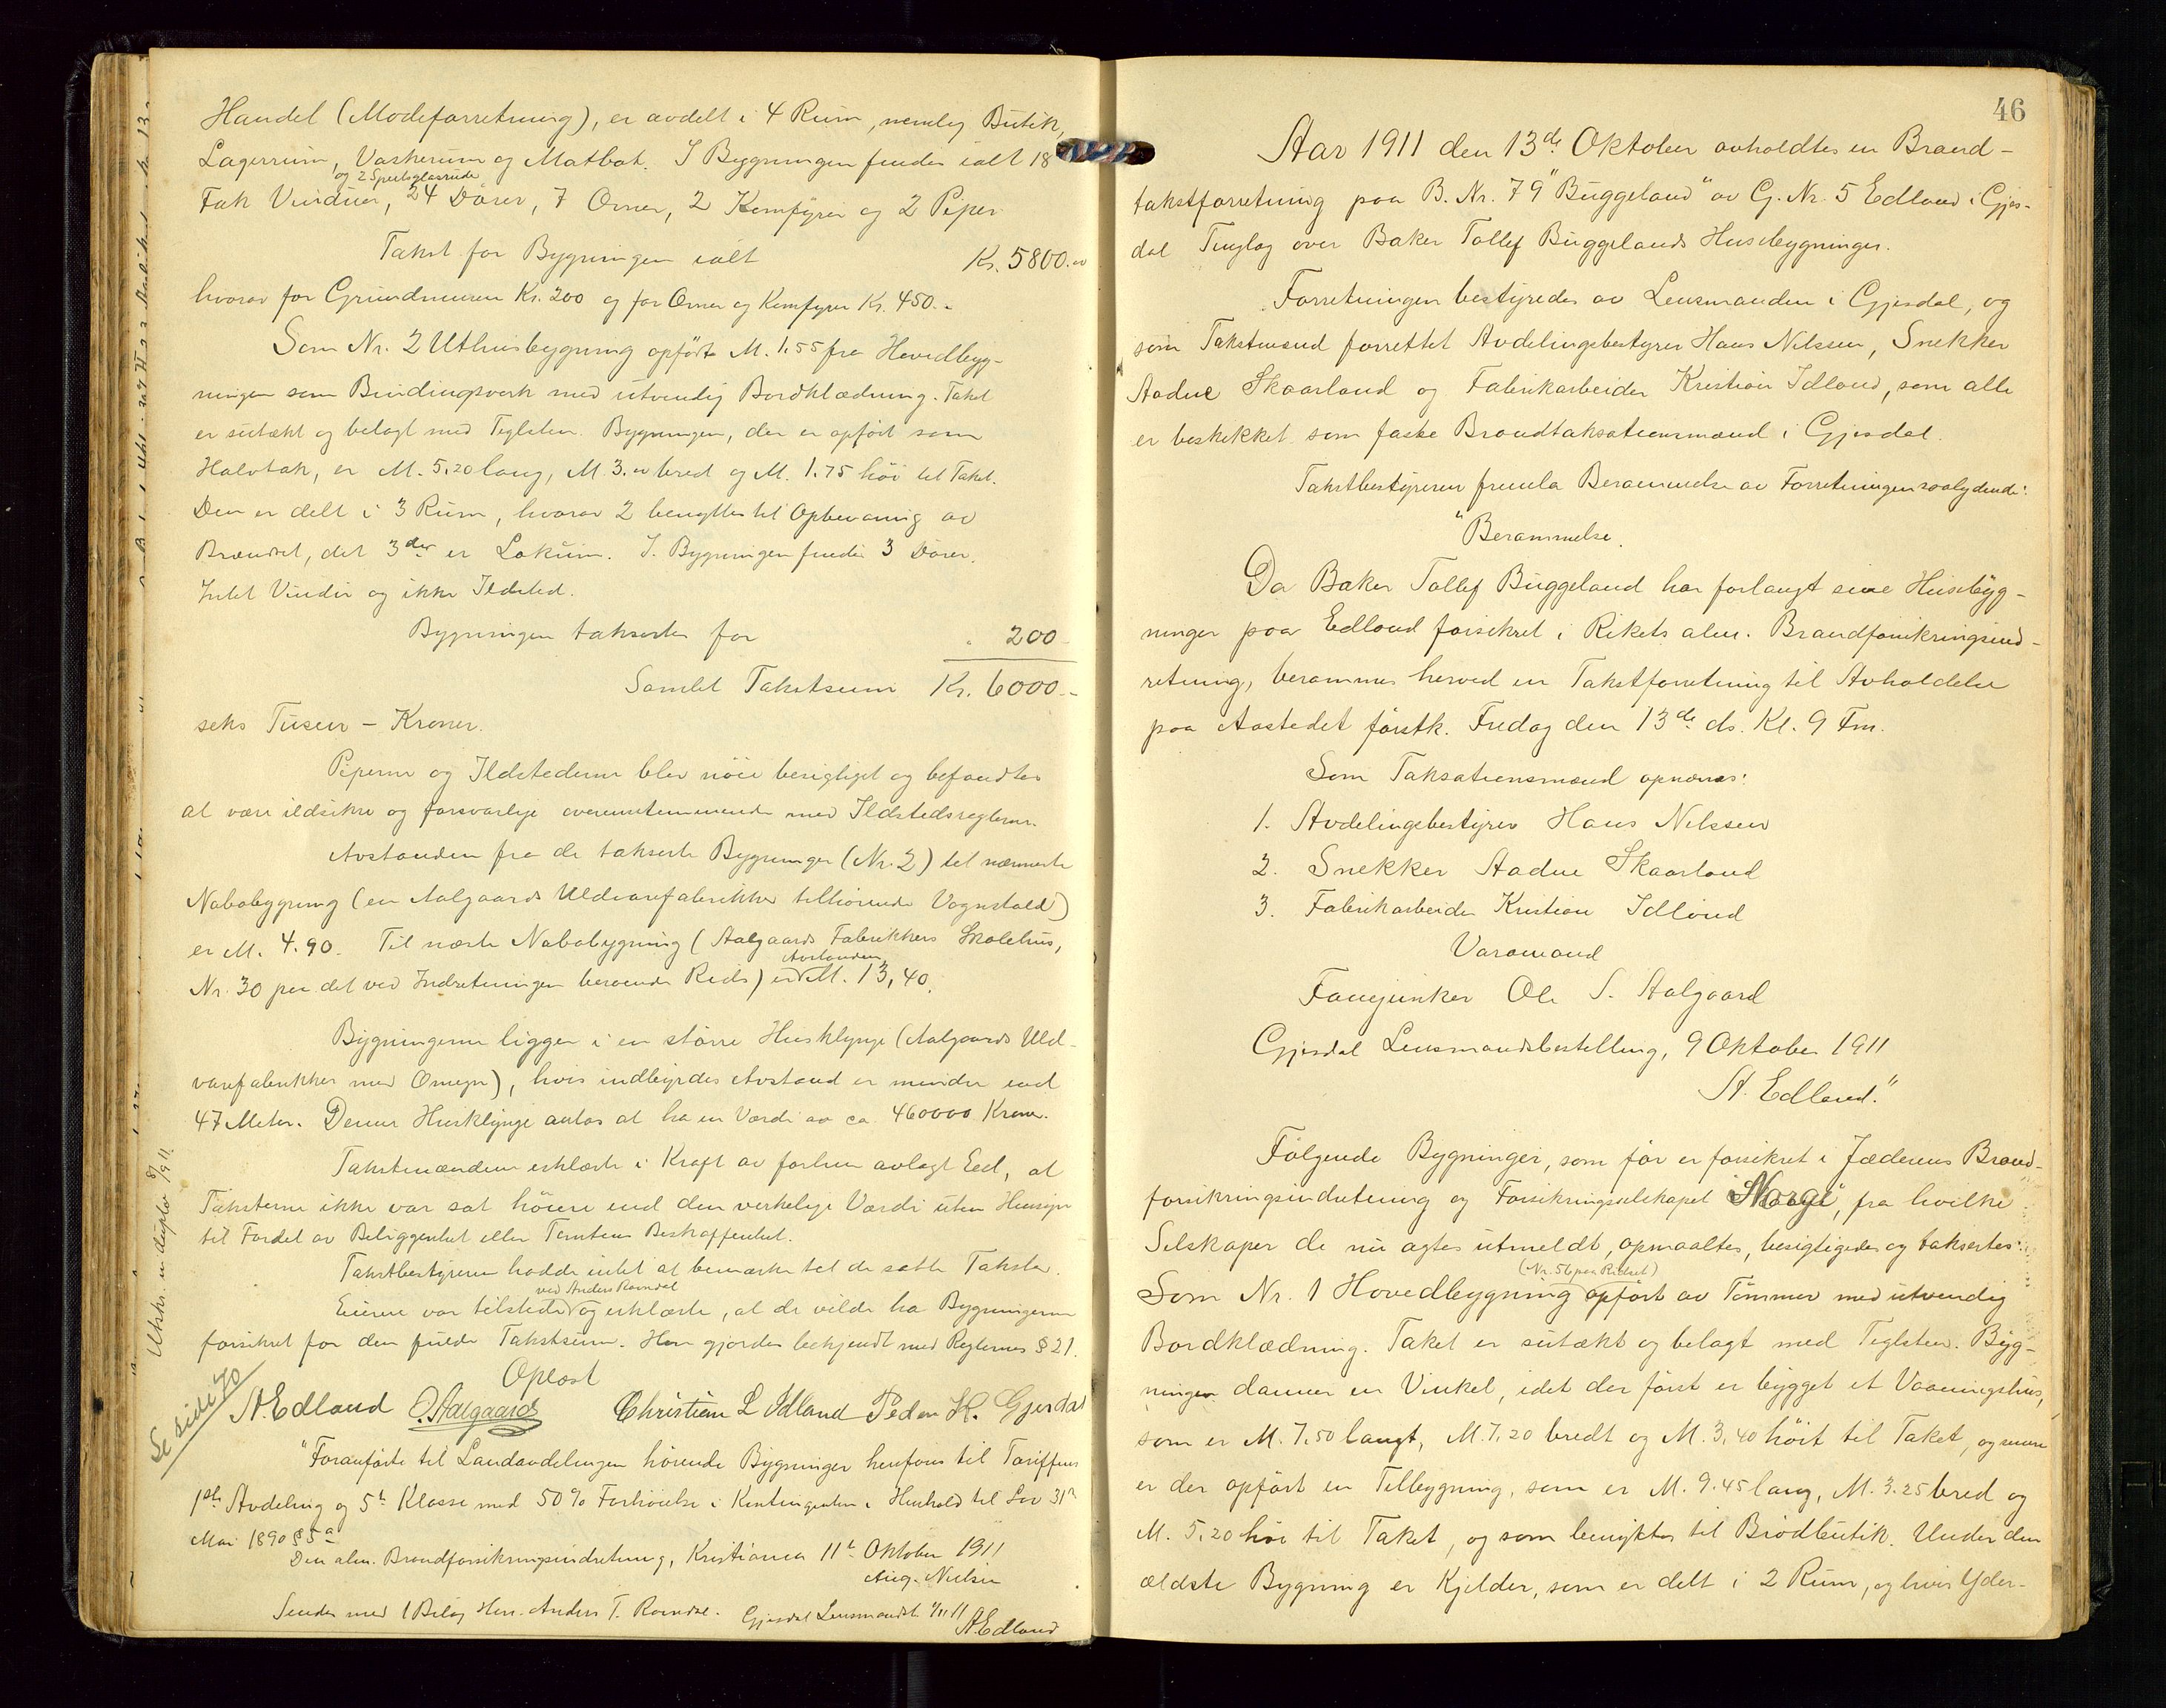 Handel (Modeforretning), er avdelt i 4 Rum, nemlig Butik,
Lagerrum, Vaskerum og Matbod. I Bygningen findes ialt 18
og 2 Speilglasruder
Fak Vinduer, 24 Dører, 7 Ovner, 2 Komfyrer og 2 Piper
Takst for Bygningen ialt Kr. 5800.00
hvorav for Grundmuren Kr. 200 og for Ovner og Komfyrer Kr. 450.-
Som Nr. 2 Uthusbygning opført M. 1.55 fra Hovedbyg-
ningen som Bindingsverk med utvendig Bordklædning. Taket
er sutækt og belagt med Teglsten. Bygningen, der er opført som
Halvtak, er M. 5.20 lang, M. 3.00 bred og M. 1.75 høi til Taket.
Den er delt i 3 Rum, hvorav 2 benyttes til Opbevaring av
Brændsel, det 3die er Lokum. I Bygningen findes 3 Dører.
Intet Vindu og ikke Ildsted.
Bygningen takseres for " 200
Samlet Takstsum Kr. 6000.-
seks Tusen - Kroner.
Piperne og Ildstederne blev nøie besigtiget og befandtes
at være ildsikre og forsvarlige overensstemmende med Ildstedsreglerne.
Avstanden fra de takserte Bygninger (Nr. 2) til nærmeste
Nabobygning (en Aalgaards Uldvarefabrikker tilhørende Vognstald)
er M. 4.90. Til næste Nabobygning (Aalgaards Fabrikkers Skolehus,
Avstanden
Nr. 30 paa det ved Indretningen beroende Rids) er M. 13,40.
Bygningerne ligger i en større Husklynge (Aalgaards Uld-
varefabrikker med Omegn), hvis indbyrdes Avstand er mindre end
47 Meter. Denne Husklynge antas at ha en Værdi av ca. 460000 Kroner.
Takstmændene erklærte i Kraft av forhen avlagt Eed, at
Taksterne ikke var sat høiere end den virkelige Værdi uten Hensyn
til Fordel av Beliggenhet eller Tomtens Beskaffenhet.
Takstbestyreren hadde intet at bemærke til de satte Takster.
ved Anders Ravndal
Eierne var tilstede og erklærte, at de vilde ha Bygningerne
forsikret for den fulde Takstsum. Han gjordes bekjendt med Reglernes § 21.
Oplæst
A. Edland O. Aalgaard Christian L Idland Peder K. Gjesdal
"Foranførte til Landavdelingen hørende Bygninger henføres til Tariffens
1ste Avdeling og 5te Klasse med 50% Forhøielse i Kontingenten i Henhold til Lov 31te
Mai 1890 § 5a
Den alm. Brandforsikringsindretning, Kristiania 11te Oktober 1911
Aug. Nielsen
Sendes med 1 Bilag Herr Anders T. Ravndal. Gjesdal Lensmandsb. 1/11 11
A. Edland
Utskr. in duplo 8/9 11.
Se side 70
46
Aar 1911 den 13de Oktober avholdtes en Brand-
takstforretning paa B. Nr. 79 "Buggeland" av G. Nr. 5 Edland i Gjes-
dal Tinglag over Baker Tollef Buggelands Husebygninger.
Forretningen bestyredes av Lensmanden i Gjesdal, og
som Takstmænd forrettet Avdelingsbestyrer Hans Nilssen, Snekker
Aadne Skaarland og Fabrikarbeider Kristian Idland, som alle
er beskikket som faste Brandtaksationsmænd i Gjesdal.
Takstbestyreren fremla Berammelse av Forretningen saalydende:
"Berammelse.
Da Baker Tollef Buggeland har forlangt sine Husebyg-
ninger paa Edland forsikret i Rikets alm. Brandforsikringsind-
retning, berammes herved en Takstforretning til Avholdelse
paa Aastedet førstk. Fredag den 13de ds. Kl. 9 Fm.
Som Taksationsmænd opnævnes:
1. Avdelingsbestyrer Hans Nilssen
2. Snekker Aadne Skaarland
3. Fabrikarbeider Kristian Idland
Varamand
Fanejunker Ole S. Aalgaard
Gjesdal Lensmandsbestilling, 9 Oktober 1911
A. Edland."
Følgende Bygninger, som før er forsikret i Jæderens Brand-
forsikringsindretning og Forsikringsselskapet "Norge", fra hvilke
Selskaper de nu agtes utmeldt, opmaaltes, besigtigedes og taksertes:
(Nr. 56 paa Ridset)
Som Nr. 1 Hovedbygning opført av Tømmer med utvendig
Bordklædning. Taket er sutækt og belagt med Teglsten. Byg-
ningen danner en Vinkel, idet der først er bygget et Vaaningshus,
som er M. 7,50 langt, M. 7,20 bredt og M. 3,40 høit til Taket, og senere
er der opført en Tilbygning, som er M. 9.45 lang, M. 3.25 bred og
M. 5,20 høi til Taket, og som benyttes til Brødbutik. Under den
ældste Bygning er Kjelder, som er delt i 2 Rum, og hvis Yder-